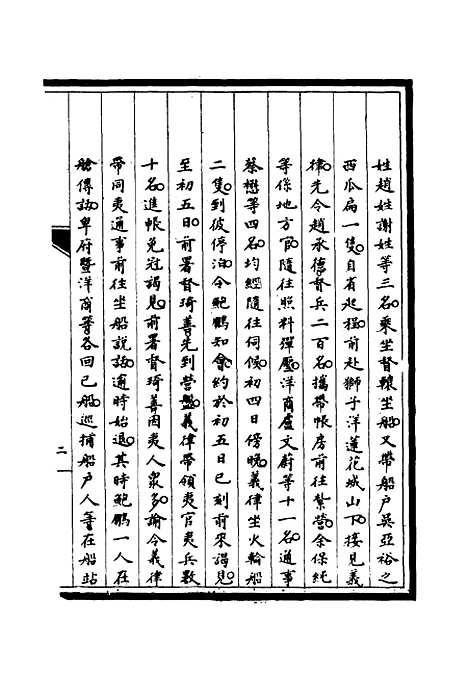 姓趙姓謝姓等三名。乘坐督轅坐船。又帶船户吳亞裕之
西瓜扁一隻。自省起程。前赴獅子洋蓮花城山下。接見義
律。先令趙承德督兵二百名。攜帶帳房前往紮營。余保純
等係地方官。隨往照料彈壓。洋商盧文蔚等十一名。通事
蔡懋等四名。均經隨往伺候。初四日傍晚。義律坐火輪船
二隻。到彼停泊。令鮑鵬知會。約於初五日巳刻前來謁見。
至初五日。前署督琦善先到營盤。義律帶領夷官夷兵數
十名。進帳免冠謁見。前署督琦善因夷人衆多。諭令義律
帶同夷通事前往坐船說話。逾時始退。其時鮑鵬一人在
艙傳話。卑府暨洋商等各回己船。巡捕船户人等在船站
二